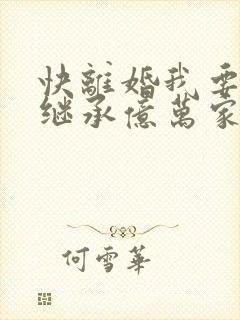 快離婚我要
继承億萬家
何雪華